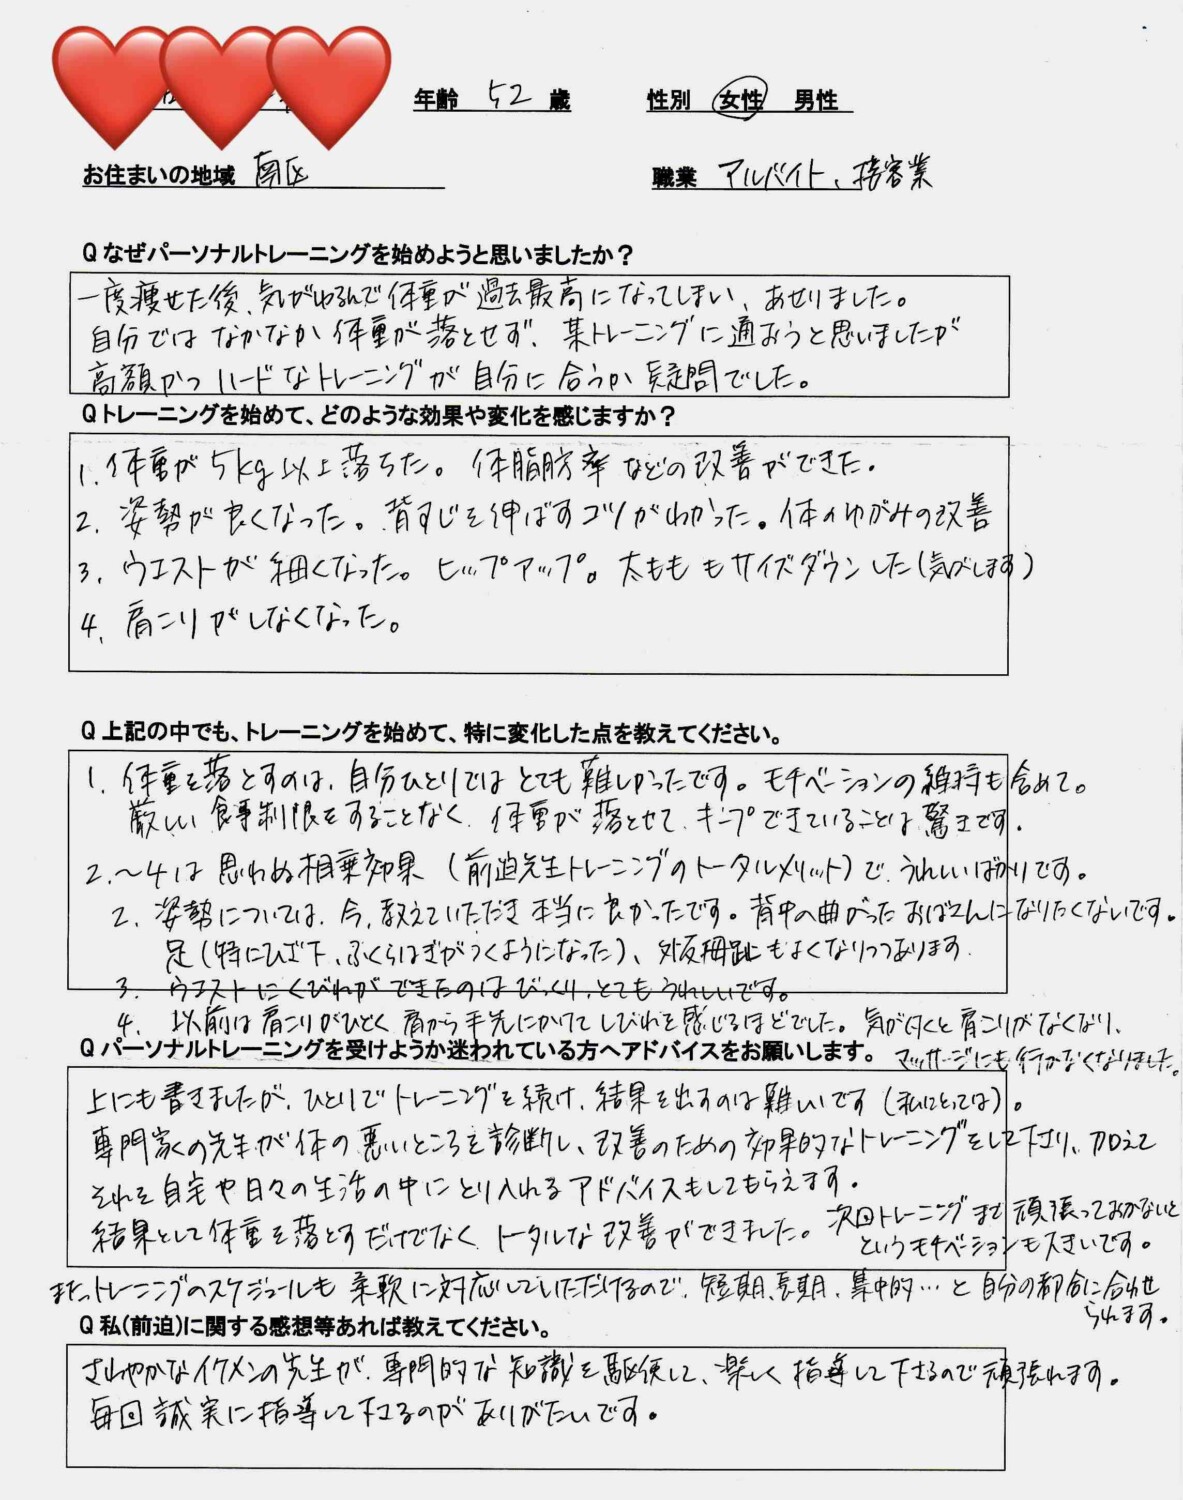 年齢 52 歳 性別 女性 男性
お住まいの地域 南区 職業 アルバイト、接客業
Q なぜパーソナルトレーニングを始めようと思いましたか？
一度痩せた後、気がゆるんで体重が過去最高になってしまい、あせりました。
自分ではなかなか体重が落とせず、某トレーニングに通おうと思いましたが
高額かつハードなトレーニングが自分に合うか疑問でした。
Q トレーニングを始めて、どのような効果や変化を感じますか？
1. 体重が5kg以上落ちた。体脂肪率などの改善ができた。
2. 姿勢が良くなった。背すじを伸ばすコツがわかった。体のゆがみの改善
3. ウエストが細くなった。ヒップアップ。太もももサイズダウンした(気がします)
4. 肩こりがしなくなった。
Q 上記の中でも、トレーニングを始めて、特に変化した点を教えてください。
1. 体重を落とすのは、自分ひとりではとても難しかったです。モチベーションの維持も含めて。
厳しい食事制限をすることなく、体重が落とせて、キープできていることは驚きです。
2.～4は思わぬ相乗効果(前迫先生トレーニングのトータルメリット)で、うれしいばかりです。
2. 姿勢については、今、教えていただき本当に良かったです。背中の曲がったおばさんになりたくないです。
足(特にひざ下、ふくらはぎがつくようになった)、外反拇趾もよくなりつつあります。
3. ウエストにくびれができたのはびっくり、とてもうれしいです。
4. 以前は肩こりがひどく、肩から手先にかけてしびれを感じるほどでした。気が付くと肩こりがなくなり、
マッサージにも行かなくなりました。
Q パーソナルトレーニングを受けようか迷われている方へアドバイスをお願いします。
上にも書きましたが、ひとりでトレーニングを続け、結果を出すのは難しいです(私にとっては)。
専門家の先生が体の悪いところを診断し、改善のための効果的なトレーニングをして下さり、加えて
それを自宅や日々の生活の中にとり入れるアドバイスもしてもらえます。
結果として体重を落とすだけでなく、トータルな改善ができました。次回トレーニングまで頑張っておかないと
というモチベーションも大きいです。
また、トレーニングのスケジュールも柔軟に対応していただけるので、短期、長期、集中的…と自分の都合に合わせ
られます。
Q 私(前迫)に関する感想等あれば教えてください。
さわやかなイケメンの先生が、専門的な知識を駆使して、楽しく指導して下さるので頑張れます。
毎回誠実に指導して下さるのがありがたいです。